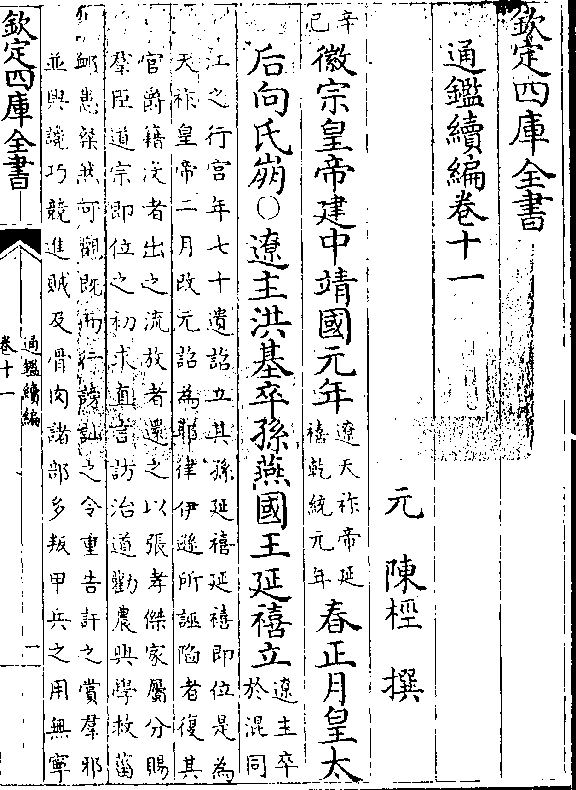 欽定四庫全書
通鑑續編卷十一
元 陳桱 撰
辛巳
徽宗皇帝建中靖國元年
遼天祚帝延
禧乾統元年
春正月皇太
后向氏崩○遼主洪基卒孫燕國王延禧立
遼主卒
於混同
江之行宮年七十遺詔立其孫延禧延禧即位是為
天祚皇帝二月改元詔為耶律伊遜所誣陷者復其
官爵籍沒者出之流放者還之以張孝傑家屬分賜
羣臣道宗即位之初求直言訪治道勸農興學救菑
卹患粲然可觀既而行謗訕之令重告訐之賞羣邪
並興讒巧競進賊及骨肉諸部多叛甲兵之用無寧
欽定四庫全書
通鑑續編
卷十一
一